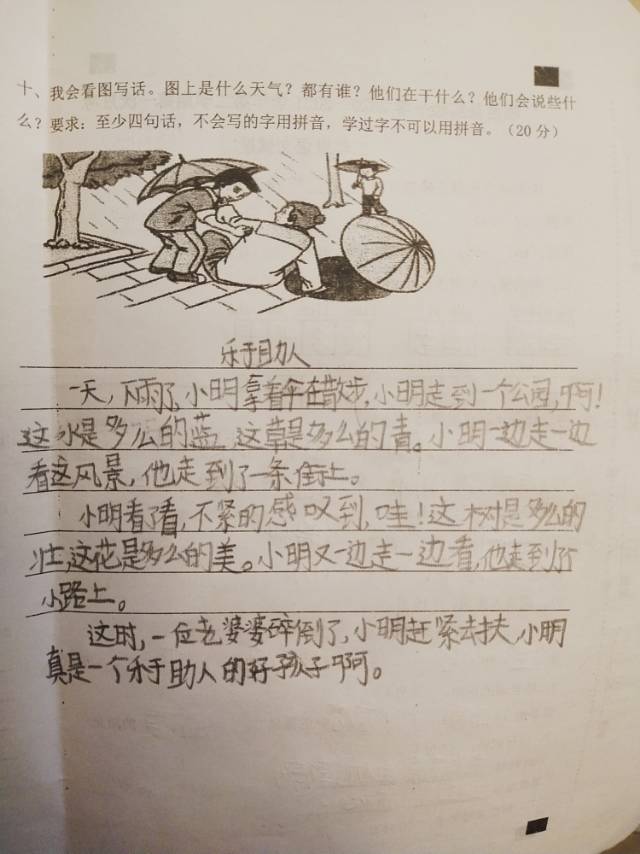 十、我会看图写话。图上是什么天气？都有谁？他们在干什么？他们会说些什
么？要求：至少四句话，不会写的字用拼音，学过字不可以用拼音。（20 分）
乐于助人
一天，下雨了，小明拿着伞在散步，小明走到一个公园，啊！
这水是多么的蓝，这草是多么的青。小明一边走一边
看这风景，他走到了一条街上。
小明看了看，不紧的感叹到，哇！这树是多么的
壮，这花是多么的美。小明又一边走一边看，他走到了
小路上。
这时，一位老婆婆碎倒了，小明赶紧去扶，小明
真是一个乐于助人的好孩子啊。